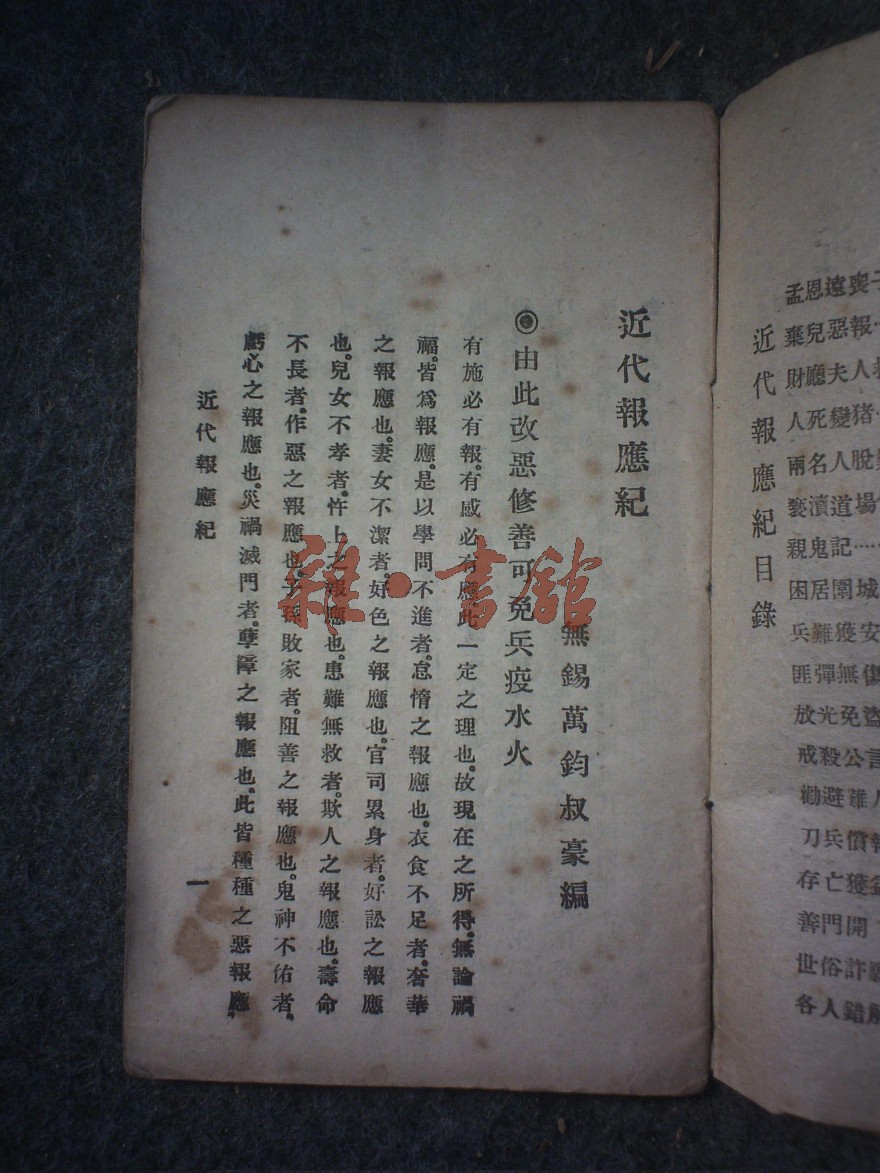 孟恩遠喪子
棄兒惡報…
財廳夫人救
人死變猪…
兩名人脫難
褻瀆道場
親鬼記……
困居圍城
兵難獲安
匪彈無傷
放光免盜
戒殺公言
勸避難
刀兵償報
存亡獲益
善門開
世俗詐
各人錯解
近代報應紀目錄
近代報應紀
無錫萬鈞叔豪編
◎由此改惡修善可免兵疫水火
有施必有報。有感必有應。此一定之理也。故現在之所得。無論禍
福。皆爲報應。是以學問不進者。怠惰之報應也。衣食不足者。奢華
之報應也。妻女不潔者。好色之報應也。官司累身者。好訟之報應
也。兒女不孝者。忤上之報應也。患難無救者。欺人之報應也。壽命
不長者。作惡之報應也。子孫敗家者。阻善之報應也。鬼神不佑者。
虧心之報應也。災禍滅門者。孽障之報應也。此皆種種之惡報應。
近代報應紀
一
雜·書館